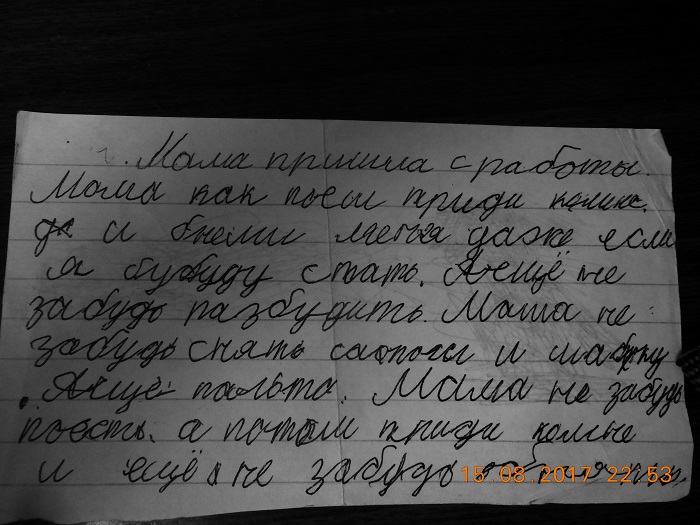 Мама пришла с работы.
Мама как поеш приди комне.
и даже если
я бубуду спать. Аещё не
забудь разбудить. Мама не
забудь снять сапоги и шабку
. Аещё пальто. Мама не забудь
поесть. а потом приди комне
и ещё не забудь
15 08 2017 22:53